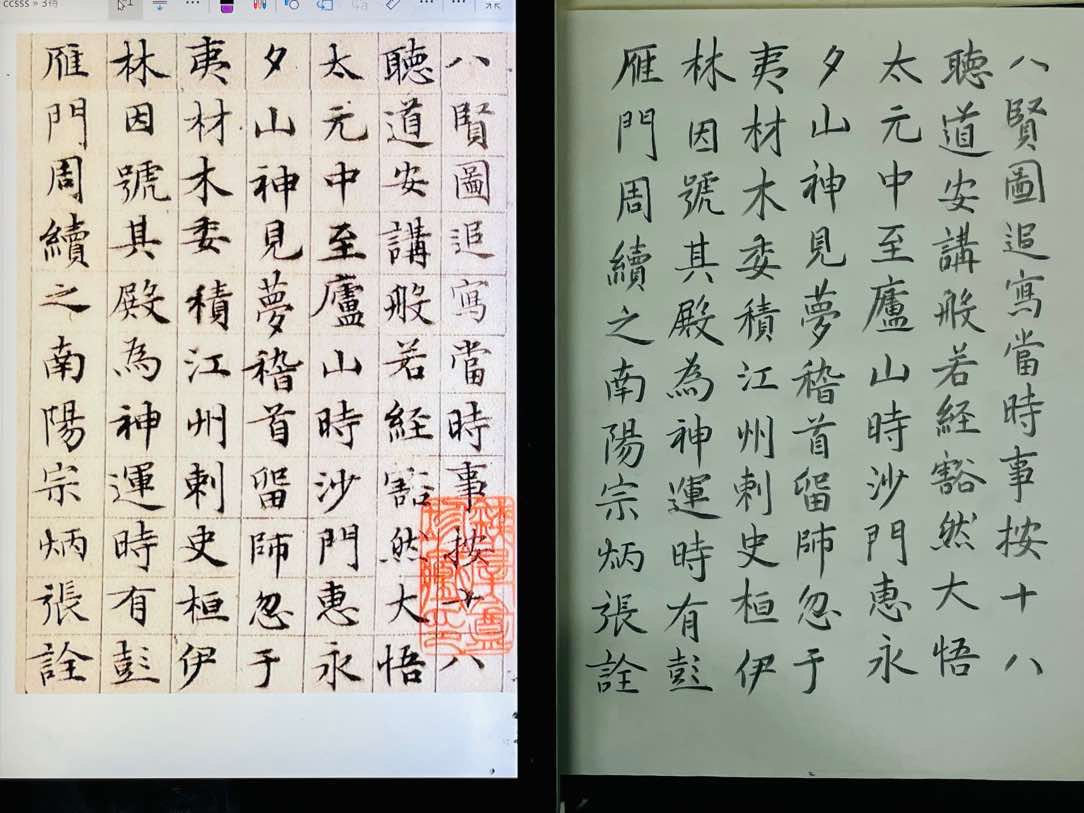 ccsss » 3待
八賢圖追寫當時事按十八
聽道安講般若経豁然大悟
太元中至廬山時沙門惠永
夕山神見夢稽首留師忽于
夷材木委積江州刺史桓伊
林因號其殿為神運時有彭
雁門周續之南陽宗炳張詮
八賢圖追寫當時事按十八
聽道安講般若経豁然大悟
太元中至廬山時沙門惠永
夕山神見夢稽首留師忽于
夷材木委積江州刺史桓伊
林因號其殿為神運時有彭
雁門周續之南陽宗炳張詮